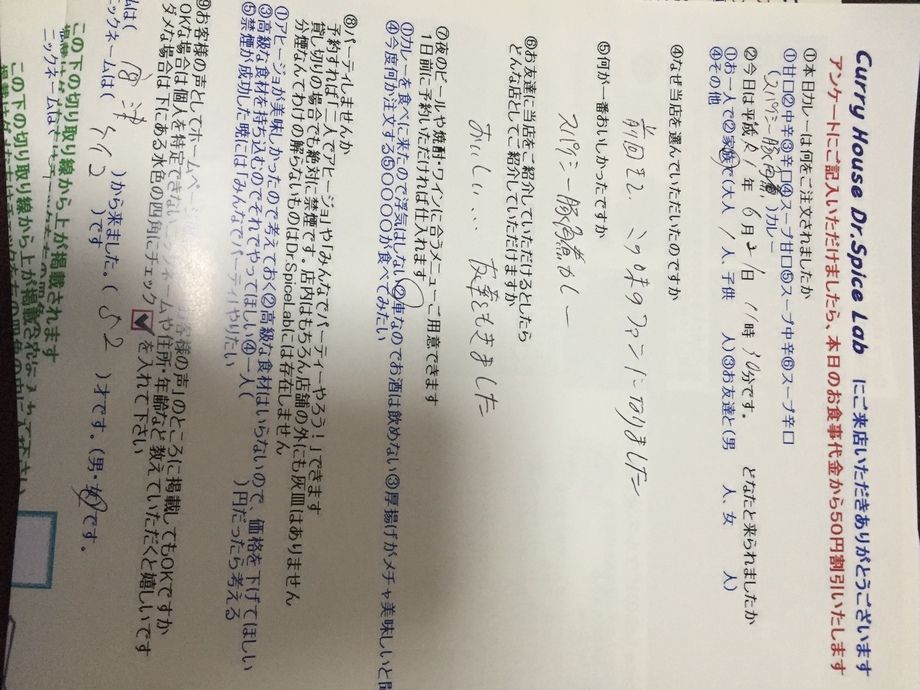 Curry House Dr.Spice Lab にご来店いただきありがとうございます
アンケートにご記入いただけましたら、本日のお食事代金から50円割引いたします
①本日カレーは何をご注文されましたか
①甘口②中辛③辛口④スープ甘口⑤スープ中辛⑥スープ辛口
(スパイシー豚角煮カレー
②今日は平成 年 6月21日 11時30分です。 どなたと来られましたか
①お一人で②家族で(大人 1人、子供 人)③お友達と(男 人、女 人)
④その他
④なぜ当店を選んでいただいたのですか
前回来て、この味のファンになりました
⑤何が一番おいしかったですか
スパイシー豚角煮カレー
⑥お友達に当店をご紹介していただけるとしたら
どんな店としてご紹介していただけますか
おいしい、、、 友達ときました
⑦夜のビールや焼酎・ワインに合うメニューご用意できます
1日前に予約いただければ仕入れます
①カレーを食べに来たので浮気はしない②車なのでお酒は飲めない③厚揚げがメチャ美味しいと聞
④今度何か注文する⑤〇〇〇〇か食べてみたい
⑧パーティしませんか
予約すれば「二人でアヒージョやみんなでパーティーやろう!」できます
貸し切りの場合でも絶対に禁煙です。店内はもちろん店舗の外にも灰皿はありません
分煙なんてわけの解らないものはDr.SpiceLabには存在しません
①アヒージョが美味しかったので考えておく②高級な食材はいらないので、価格を下げてほしい
③高級な食材を持ち込むのでそれでやってほしい④一人( )円だったら考える
⑤禁煙が成功した暁には「みんなでパーティやりたい」
⑨お客様の声としてホームページ「お客様の声」のところに掲載してもOKですか
OKな場合は個人を特定できないニックネームや住所・年齢など教えていただくと嬉しいです
ダメな場合は下にある水色の四角にチェック☑を入れて下さい
私は( )から来ました。( 52 )才です。(男・女)です。
ニックネームは( )です
この下の切り取り線から上が掲載されます
ニックネームは
この下の切り取り線から上が掲載